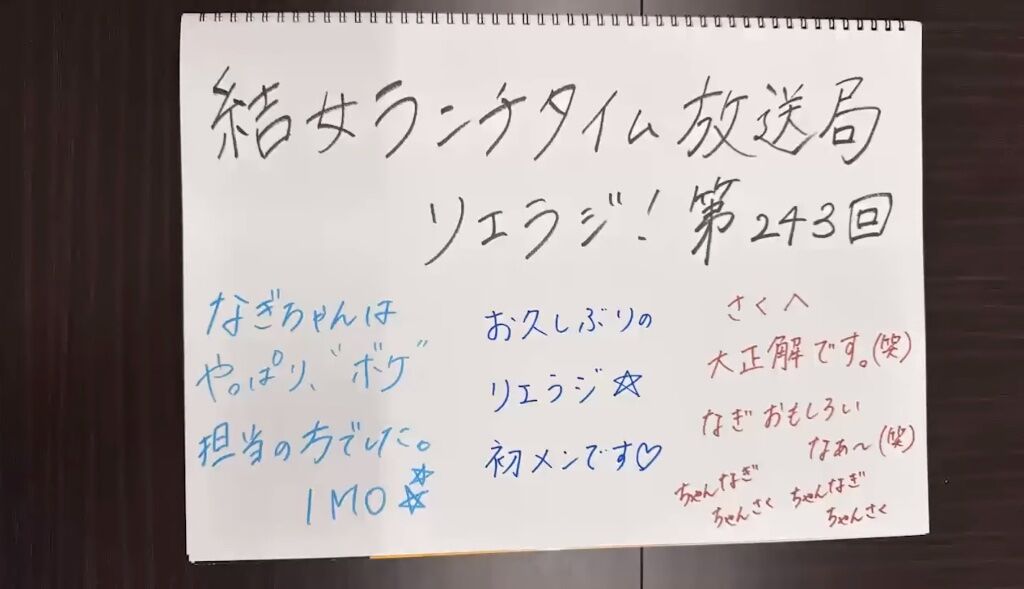 結女ランチタイム放送局
リエラジ! 第243回
なぎちゃんは
やっぱり、"ボケ"
担当の方でした。
IMO☆☆
お久しぶりの
リエラジ☆
初メンです♡
さくへ
大正解です。(笑)
なぎおもしろい
なぁ〜(笑)
ちゃんなぎ
ちゃんさく
ちゃんなぎ
ちゃんさく